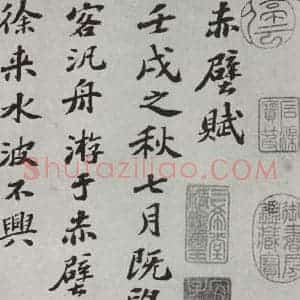 赤壁賦
壬戌之秋七月既望
客汎舟游于赤壁
徐来水波不興
Shufaziliao.com